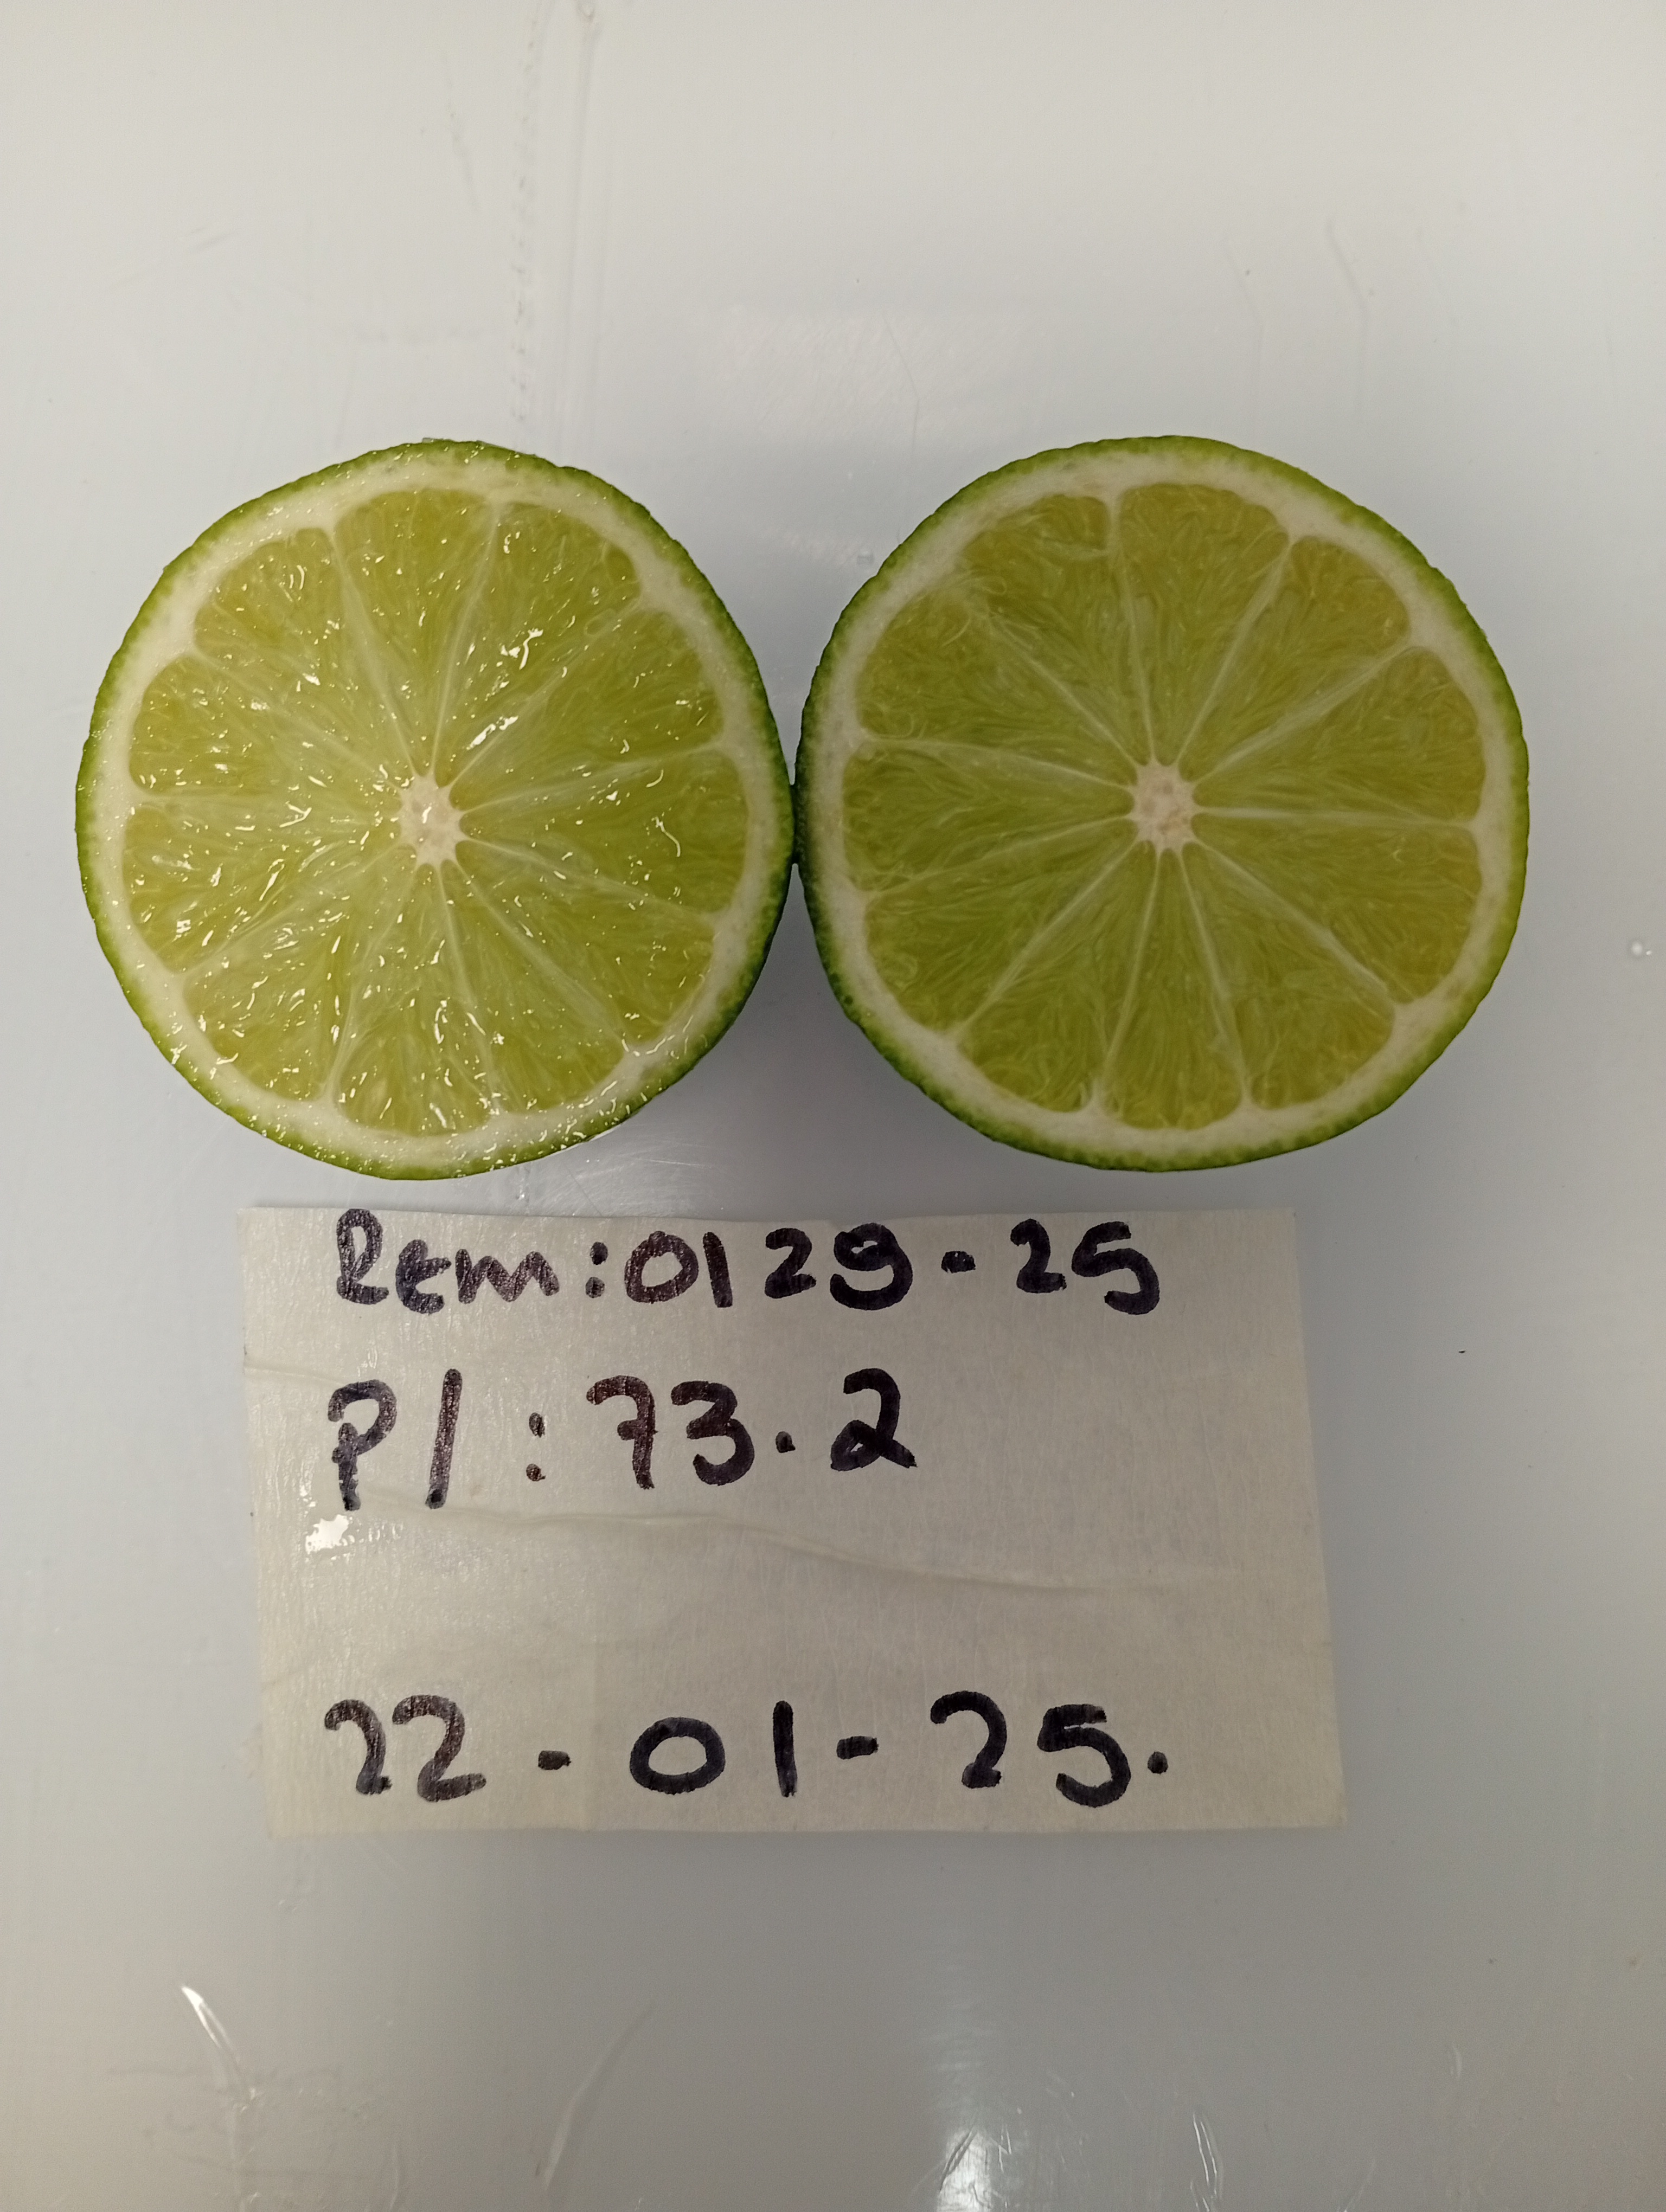 Rem: 0129-25
P/: 73.2
22-01-25.